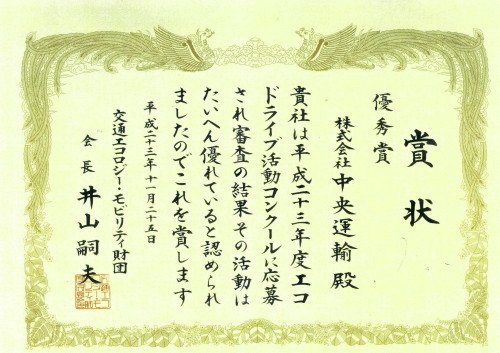 賞状
優秀賞
株式会社中央運輸殿
貴社は平成二十三年度エコ
ドライブ活動コンクールに応募
され審査の結果その活動は
たいへん優れていると認められ
ましたのでこれを賞します
平成二十三年十一月二十五日
交通エコロジー・モビリティ財団
会長 井山嗣夫